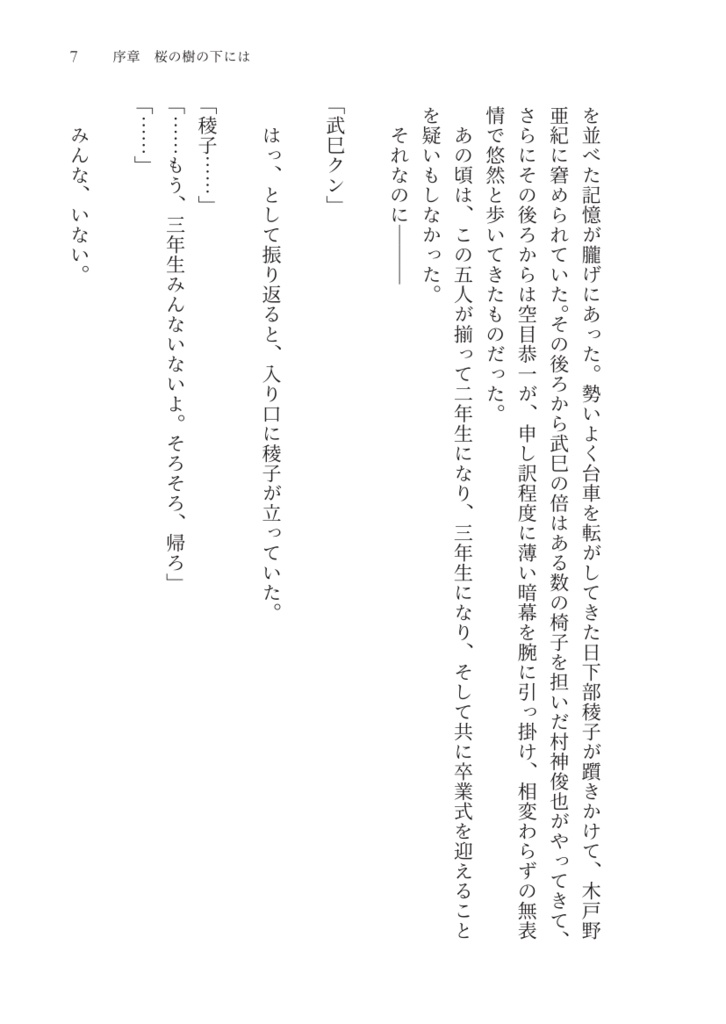 7 序章 桜の樹の下には
を並べた記憶が朧げにあった。勢いよく台車を転がしてきた日下部稜子が躓きかけて、木戸野
亜紀に窘められていた。その後ろから武巳の倍はある数の椅子を担いだ村神俊也がやってきて、
さらにその後ろからは空目恭一が、申し訳程度に薄い暗幕を腕に引っ掛け、相変わらずの無表
情で悠然と歩いてきたものだった。
あの頃は、この五人が揃って二年生になり、三年生になり、そして共に卒業式を迎えること
を疑いもしなかった。
それなのに――――
「武巳クン」
はっ、として振り返ると、入り口に稜子が立っていた。
「稜子……」
「……もう、三年生みんないないよ。そろそろ、帰ろ」
「……」
みんな、いない。